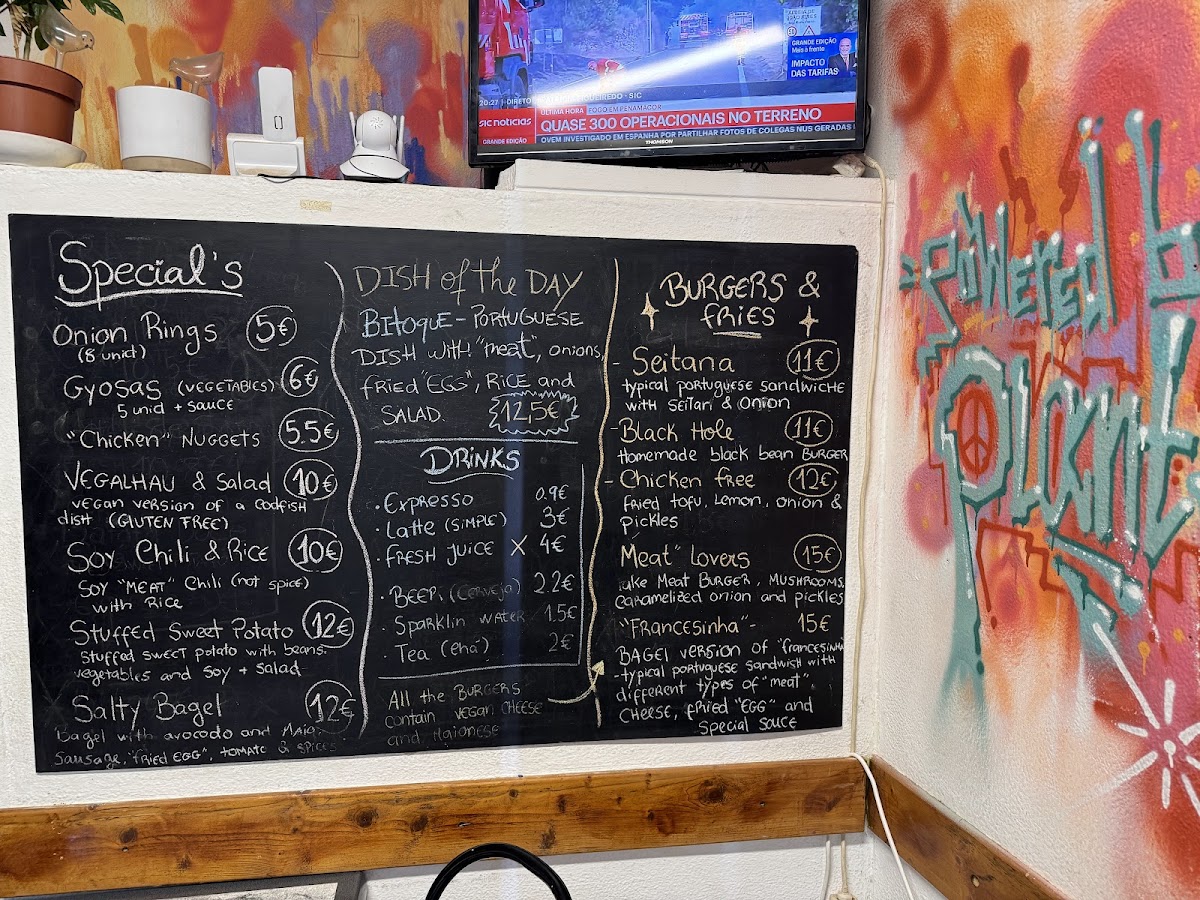 AVENIDA DE
GRANDE EDIÇÃO
Mais à frente
IMPACTO
DAS TARIFAS
20:27 | DIRETO
SIC
ÚLTIMA HORA | FOGO EM PENAMACOR
sic notícias
QUASE 300 OPERACIONAIS NO TERRENO
GRANDE EDIÇÃO
OVEM INVESTIGADO EM ESPANHA POR PARTILHAR FOTOS DE COLEGAS NUS GERADAS
THOMSON
Special's
Onion Rings 5€
(8 unid)
Gyosas (vegetables) 6€
5 unid + sauce
"Chicken" Nuggets 5.5€
Vegalhau & Salad 10€
vegan version of a codfish
dish (GLUTEN FREE)
Soy Chili & Rice 10€
Soy "MEAT" Chili (not spice)
with Rice
Stuffed Sweet Potato 12€
Stuffed sweet potato with beans,
vegetables and soy + salad
Salty Bagel 12€
Bagel with avocodo and Maio,
Sausage, "fried EGG", TOMATO & SPICES
DISH of the DAY
Bitoque - PORTUGUESE
DISH with "meat", onions,
fried "EGG", RICE and
SALAD. 12,5€
DRINKS
· Expresso 0.9€
· Latte (SIMPLE) 3€
· FRESH JUICE X 4€
· BEER (CERVEJA) 2.2€
· Sparklin WATER 1.5€
· Tea (chá) 2€
All the BURGERS
contain VEGAN CHEESE
and Maionese
BURGERS &
fRIES
- Seitana 11€
typical PORTUGUESE Sandwiche
with SEITAN & ONION
- Black Hole 11€
Homemade black bean BURGER
- Chicken free 12€
fried tofu, Lemon, onion &
pickles
Meat" Lovers 15€
Fake Meat BURGER, MUSHROOMS,
caramelized onion and pickles
"Francesinha" - 15€
BAGEL version of "francesinha"
-typical portuguese sandwish with
different types of "meat",
CHEESE, fRIED "EGG" and
Special sauce
"Powered by
Plants